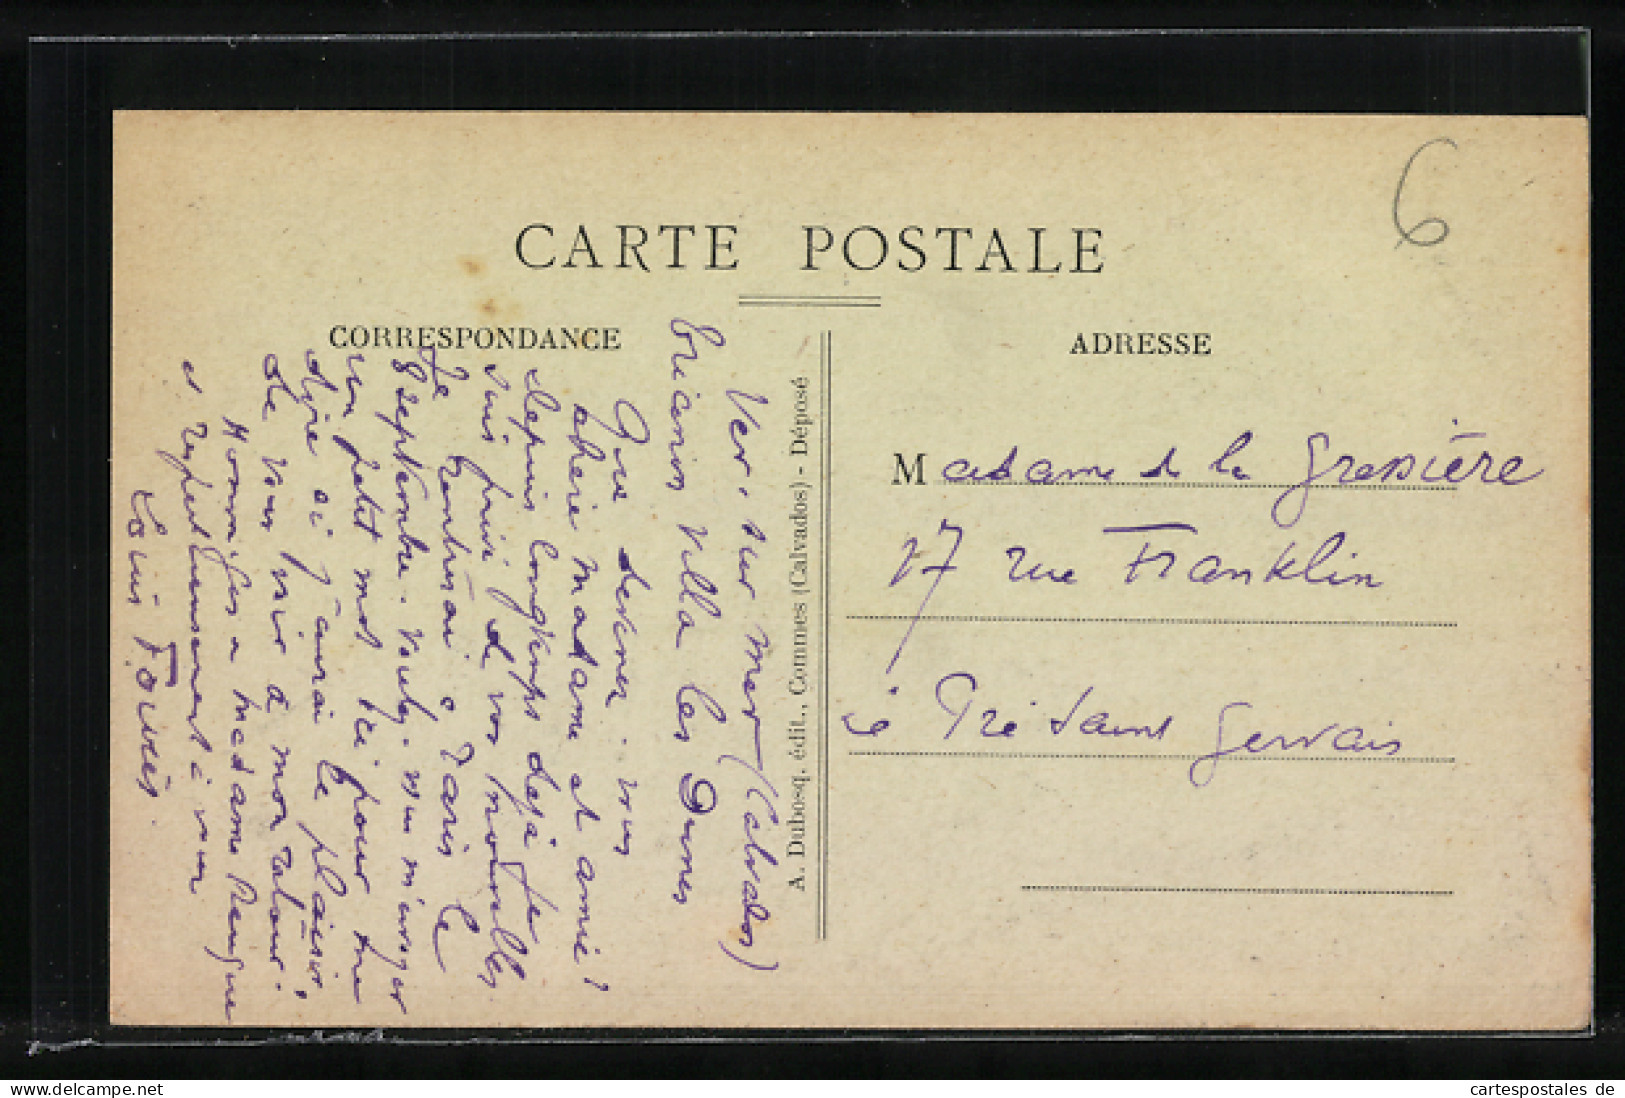 6
CARTE POSTALE
CORRESPONDANCE
ADRESSE
Ver. sur mer (Calvados)
villa les Dunes
Que devenez-vous
chère madame et amie!
depuis longtemps déjà je
suis privé de vos nouvelles
Je rentrerai à Paris le
8 septembre. voulez-vous m'envoyer
un petit mot ici pour me
dire si j'aurai le plaisir
de vous voir à mon retour!
Hommages a madame
et respectueusement à vous
Louis
A. Dubosq. édit., Commes (Calvados) - Déposé
Madame de la Gressière
17 rue Franklin
Le Pré Saint Gervais
www.delcampe.net
cartespostales de